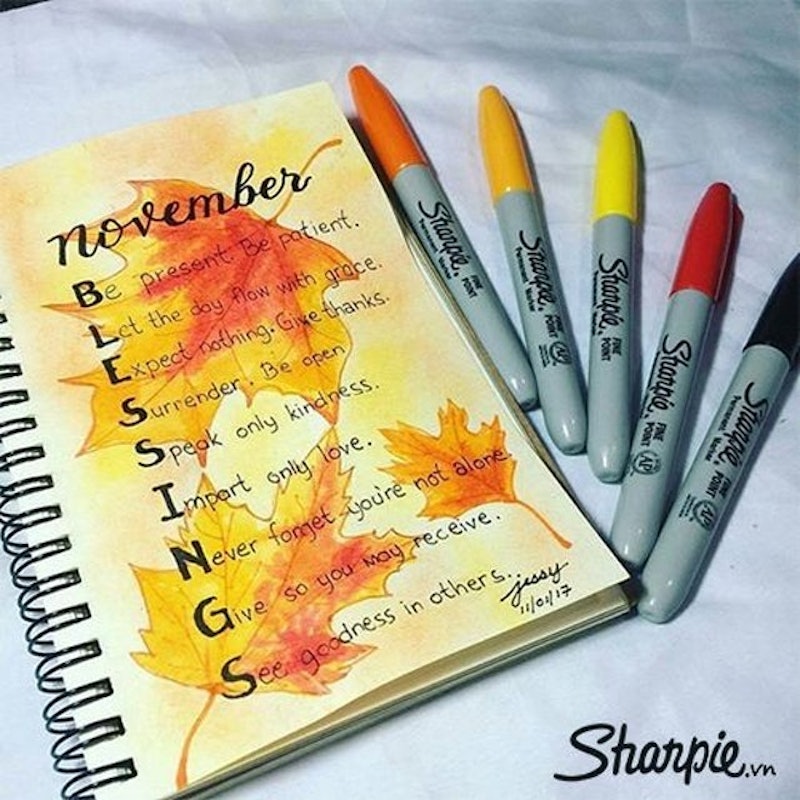 november
Be present. Be patient.
Let the day flow with grace.
Expect nothing. Give thanks.
Surrender. Be open
Speak only kindness.
Impart only love.
Never forget you're not alone.
Give so you may receive.
See goodness in others.
jessy
11/01/17
Sharpie.
Permanent Marker
FINE
POINT
Sharpie.
Permanent Marker
FINE
POINT
AP
Sharpie.
FINE
POINT
Sharpie.
FINE
POINT
AP
Sharpie.
Permanent Marker
FINE
POINT
AP
Sharpie.vn